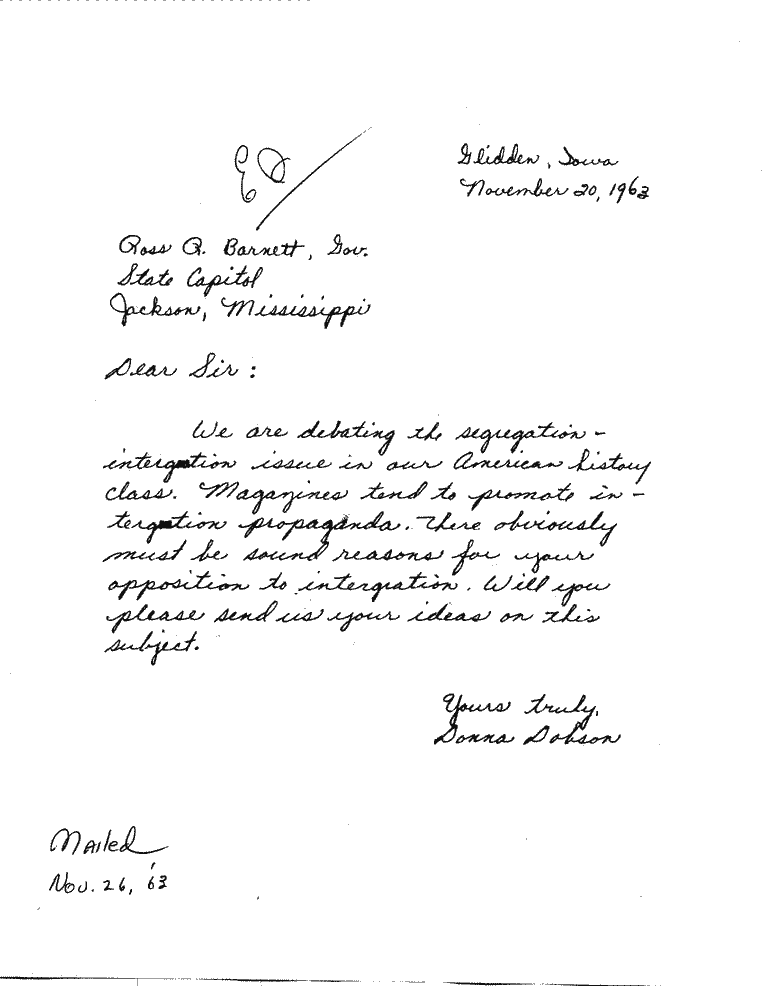 Glidden, Iowa
November 20, 1963
Ross R. Barnett, Gov.
State Capitol
Jackson, Mississippi
Dear Sir :
We are debating the segregation -
intergration issue in our American history
class. Magazines tend to promote in -
tergration propaganda. There obviously
must be sound reasons for your
opposition to intergration. Will you
please send us your ideas on this
subject.
Yours truly,
Donna Dobson
Mailed
Nov. 26, '63